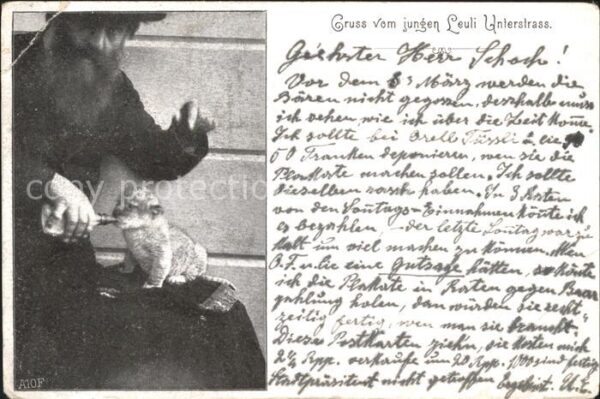 Gruss vom jungen Leuli Unterstrass.
Geehrter Herr Schoch!
Vor dem 8 März werden die
Bären nicht gegossen, deshalb muss
ich sehen wie ich über die Zeit kome.
Ich sollte bei Orell Füssli u. lie
50 Franken deponieren, wen sie die
Plakate machen sollen. Ich sollte
dieselben rasch haben. In 3 Raten
von den Sontags-Einnahmen könte ich
es bezahlen, der letzte Sontag war zu
kalt um viel machen zu können. Wen
O.F. u. lie eine Gutsage hätten, so könte
ich die Plakate in Raten gegen Baar
zahlung holen, dan würden sie recht-
zeitig fertig, wen man sie braucht.
Diese Postkarten ziehn, sie kosten mich
2½ Rpp. verkaufe um 20 Rpp. 1000 sind fertig
Stadtpräsident nicht getroffen Ergebenst.
copy protection
A10F